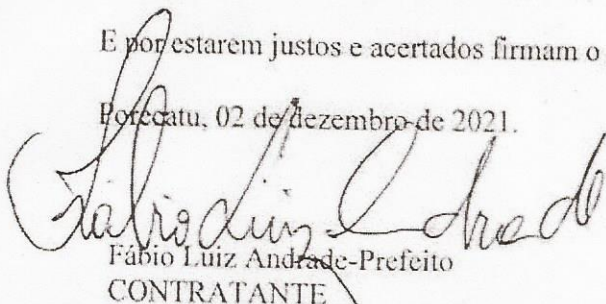 E por estarem justos e acertados firmam o
Porecatu, 02 de dezembro de 2021.
Fábio Luiz Andrade
Fábio Luiz Andrade-Prefeito
CONTRATANTE